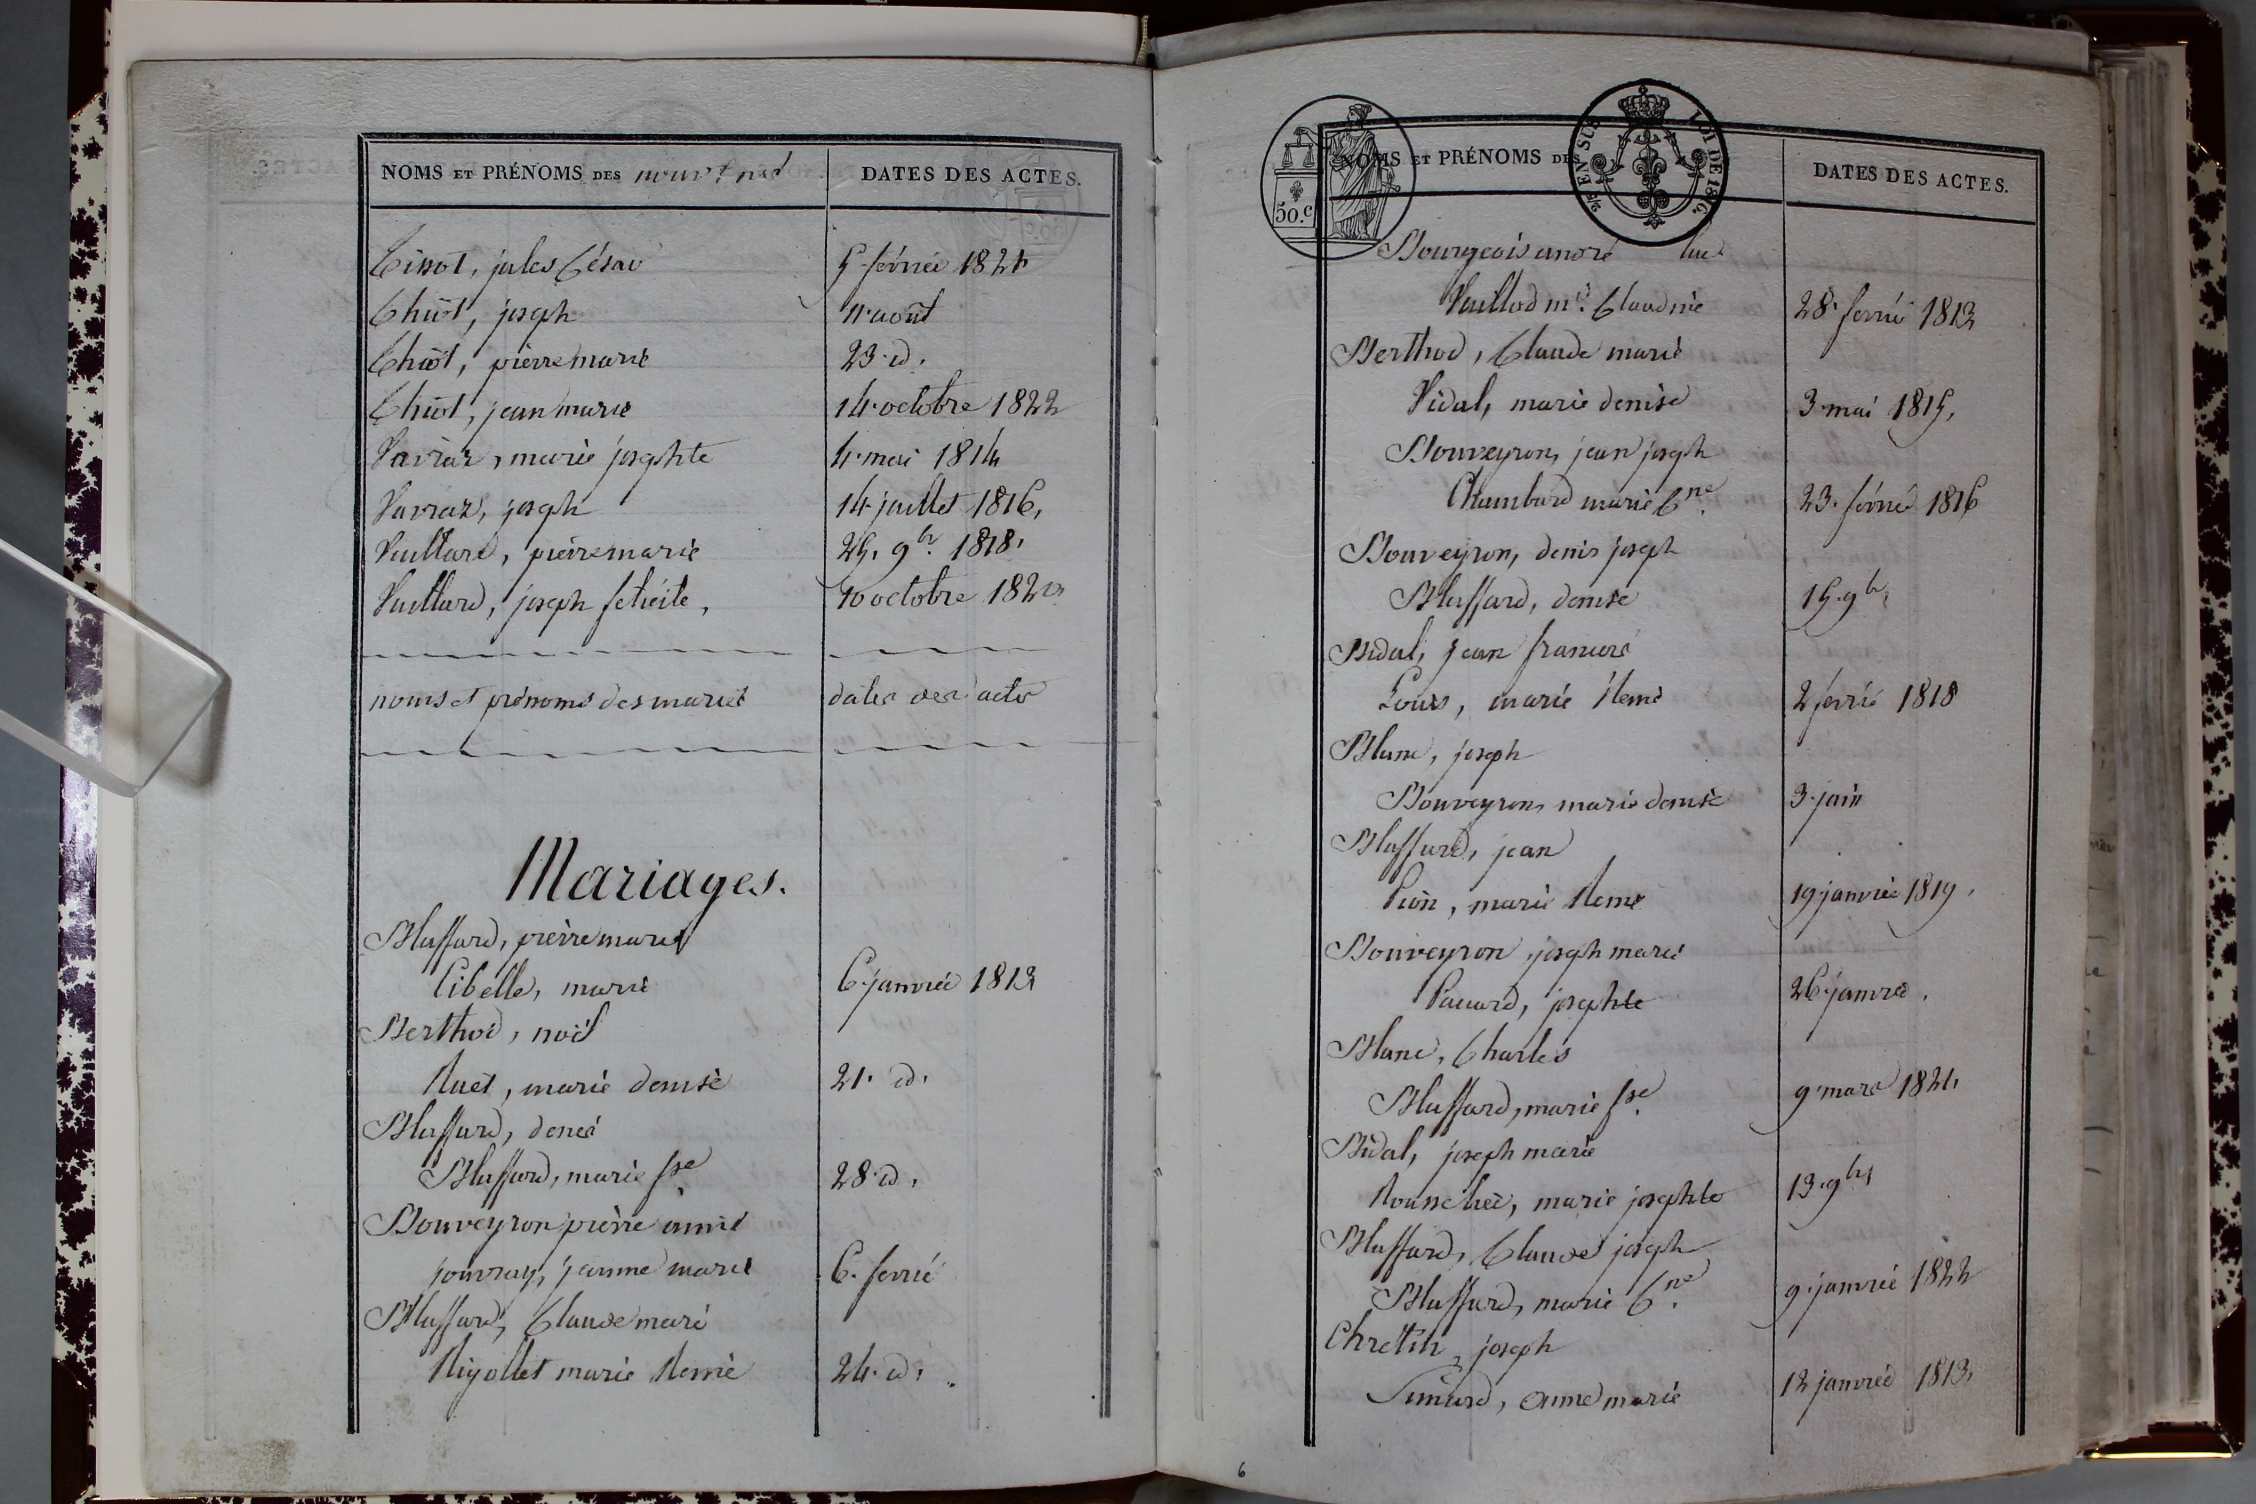 NOMS ET PRÉNOMS DES nouv.t nés DATES DES ACTES.
Tissot, jules César 5 février 1821
Thiot, joseph 11 août
Thiot, pierre marie 23 id.
Thiot, jean marie 14 octobre 1822
Vavraz, marie josephte 4 mai 1814
Vavraz, joseph 14 juillet 1816,
Vuillard, pierre marie 25. 9br. 1818.
Vuillard, joseph félicité, 10 octobre
noms et prénoms des mariés dates des actes
Mariages.
Bluffard, pierre marie
Cibelle, marie 6 janvier 1813
Berthod, noël
Ruet, marie denise 21. id.
Bluffard, denis
Bluffard, marie fse. 28. id.
Bouveyron pierre aimé
jouvray, jeanne marie 6. fevrié
Bluffard, Claude marie
Rigollet marie Reine 24. id.
50.c
EN SUS LOI DE 1816.
NOMS ET PRÉNOMS DES DATES DES ACTES.
Bourgeois andré luc
Vuillod m.e Claudine 28. fevrié 1813
Berthod, Claude marie
Vidal, marie denise 3 mai 1815.
Bouveyron, jean joseph
Chambard marie Cne. 23. février 1816
Bouveyron, denis joseph
Bluffard, denise 15. 9br.
Bidal, jean francois
marie Reine 2 févrié 1818
Blanc, joseph
Bouveyron, marie denise 3. juin
Bluffard, jean
Pion, marie Reine 19 janvier 1819.
Bouveyron joseph marie
josephte 26 janvier.
Blanc, Charles
Bluffard, marie fse. 9 mars 1821.
Bidal, joseph marie
marie josephte 13. 9br.
Bluffard, Claude joseph
Bluffard, marie Cne. 9. janvier 1822
Chrétin, joseph
Simard, anne marie 12 janvier 1813.
6